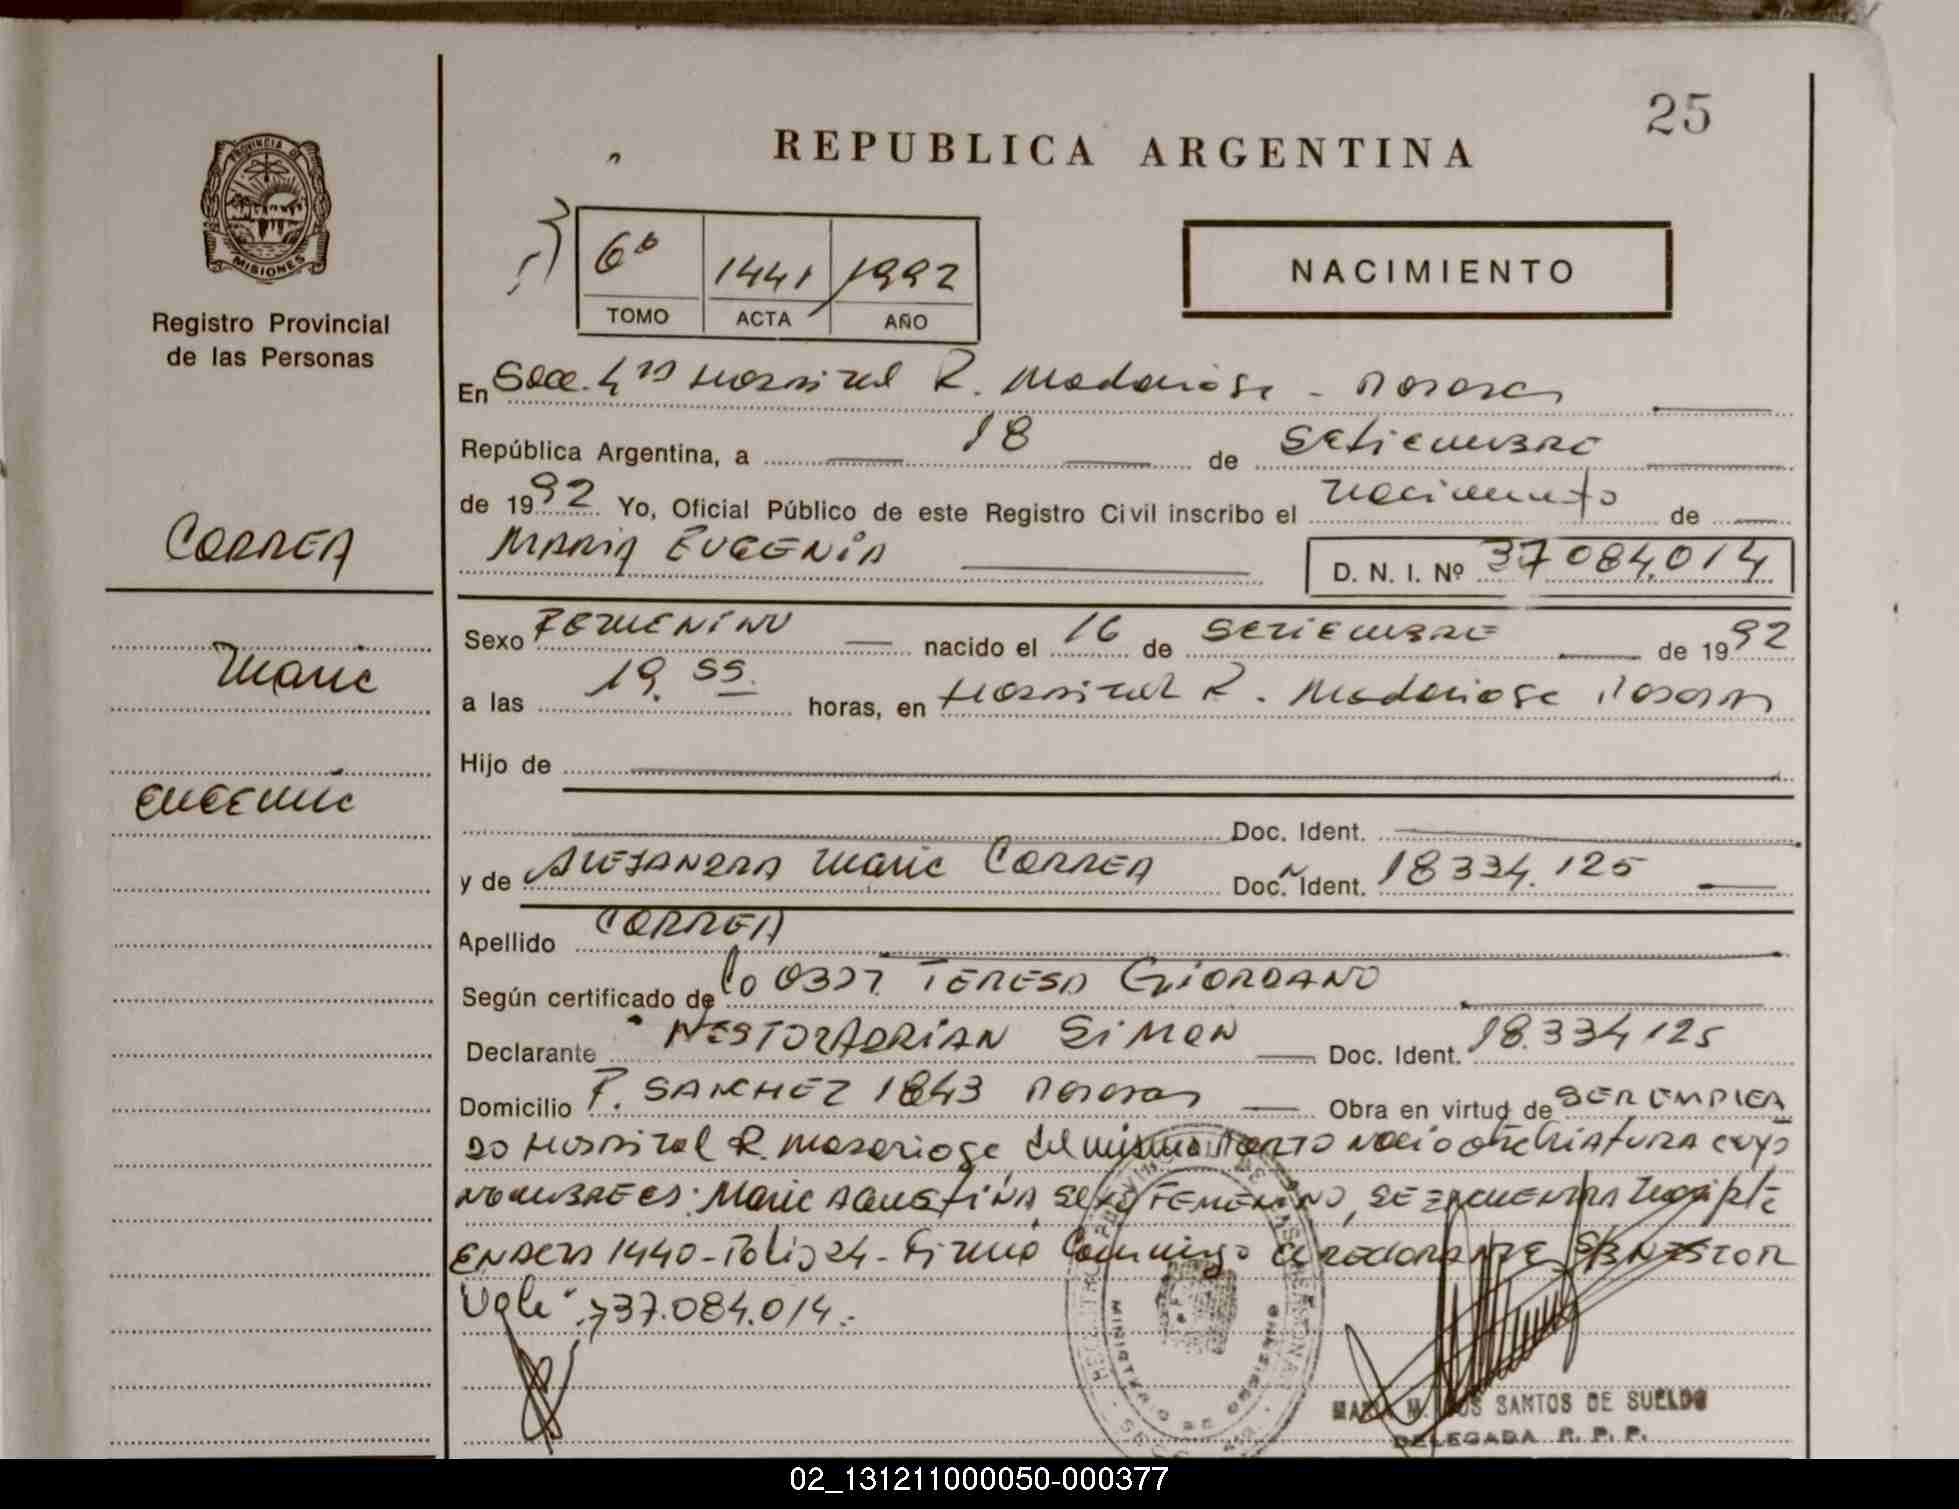 25
REPUBLICA ARGENTINA
PROVINCIA DE
MISIONES
Registro Provincial
de las Personas
6º 1441 1992
TOMO ACTA AÑO
NACIMIENTO
En Secc. 4ta Hospital R. Madariaga - Posadas
República Argentina, a 18 de Setiembre
de 1992 Yo, Oficial Público de este Registro Civil inscribo el nacimiento de
CORREA
MARIA EUGENIA D. N. I. Nº 37084.014
Sexo FEMENINO nacido el 16 de SETIEMBRE de 1992
Maria
a las 19.55. horas, en Hospital R. Madariaga Posadas
Hijo de
Eugenia
Doc. Ident.
y de ALEJANDRA Maria CORREA Doc. Ident. 18334.125
Apellido CORREA
Según certificado de TERESA GIORDANO
Declarante NESTOR ADRIAN SIMON Doc. Ident. 18.334125
Domicilio F. SANCHEZ 1843 Posadas Obra en virtud de SER EMPLEA
DO Hospital R. Madariaga del mismo PARTO Nacio otra CRIATURA cuyo
NOMBRE es: Maria AGUSTINA, Sexo FEMENINO, SE ENCUENTRA
EN ACTA 1440 - Folio 24 - Firma Conmigo NESTOR
Vale: 37.084.014.
MINISTERIO DE GOBIERNO
MARIA M. DOS SANTOS DE SUELDO
DELEGADA R. P. P.
02_131211000050-000377